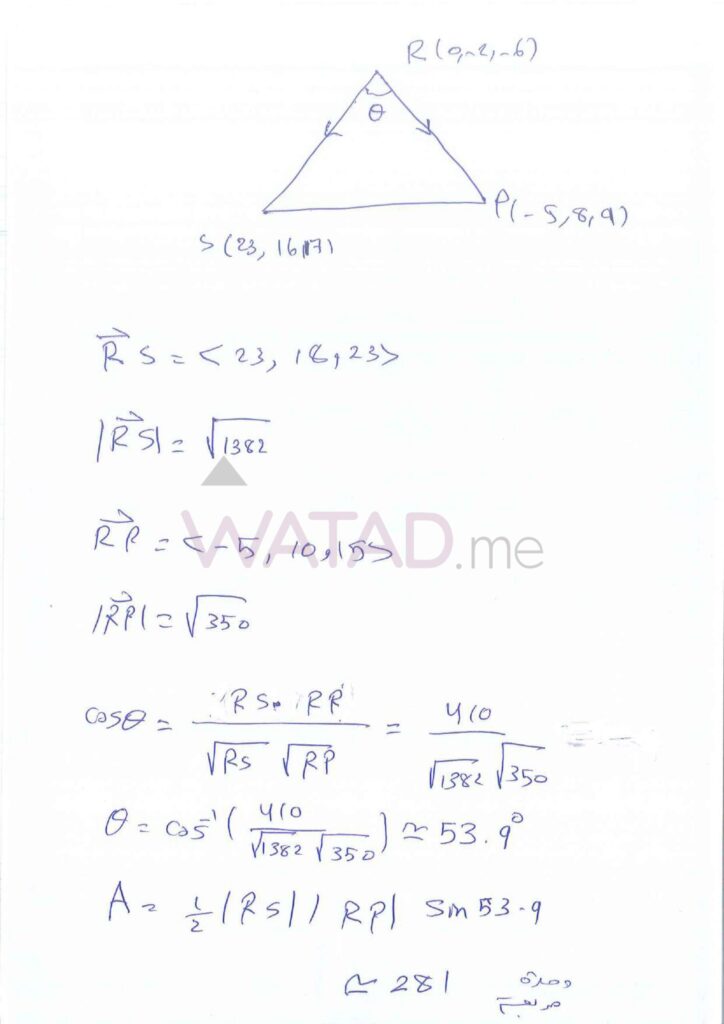 R (0,-2,-6)
θ
P(-5,8,9)
S (23, 16,17)
RS = <23, 18,23>
|RS| = √1382
WATAD.me
RP = <-5, 10,15>
|RP| = √350
cosθ = RS. RP / √RS √RP = 410 / √1382 √350
θ = cos⁻¹ ( 410 / √1382 √350 ) ≃ 53.9°
A = 1/2 |RS| | RP| Sin 53.9
≃ 281 وحدة
مربعة